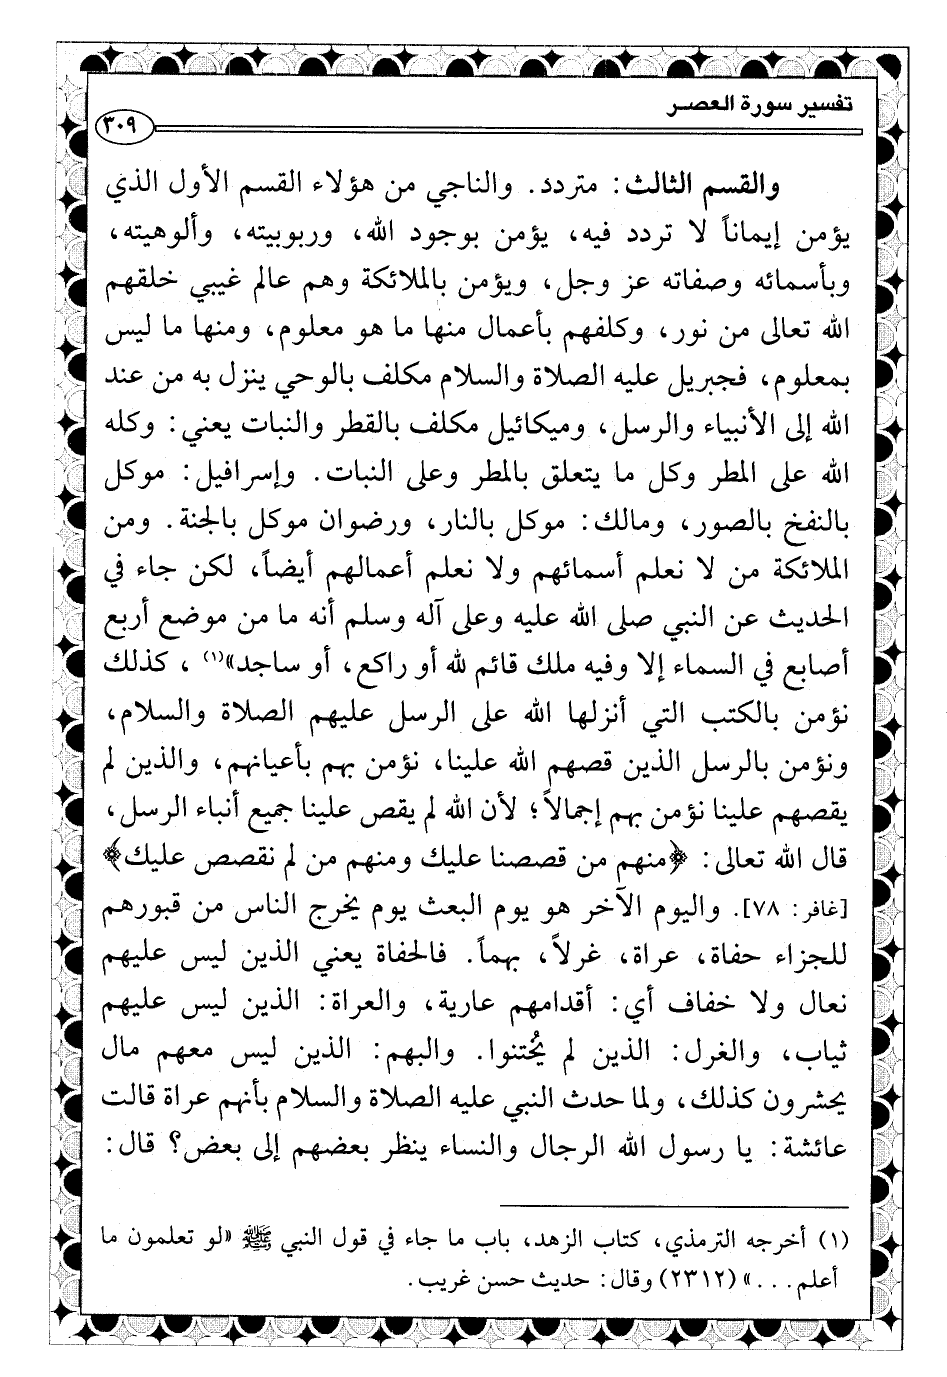 تفسير سورة العصر
٣٠٩
والقسم الثالث: متردد. والناجي من هؤلاء القسم الأول الذي
يؤمن إيماناً لا تردد فيه، يؤمن بوجود الله، وربوبيته، وألوهيته،
وبأسمائه وصفاته عز وجل، ويؤمن بالملائكة وهم عالم غيبي خلقهم
الله تعالى من نور، وكلفهم بأعمال منها ما هو معلوم، ومنها ما ليس
بمعلوم، فجبريل عليه الصلاة والسلام مكلف بالوحي ينزل به من عند
الله إلى الأنبياء والرسل، وميكائيل مكلف بالقطر والنبات يعني: وكله
الله على المطر وكل ما يتعلق بالمطر وعلى النبات. وإسرافيل: موكل
بالنفخ بالصور، ومالك: موكل بالنار، ورضوان موكل بالجنة. ومن
الملائكة من لا نعلم أسمائهم ولا نعلم أعمالهم أيضاً، لكن جاء في
الحديث عن النبي صلى الله عليه وعلى آله وسلم أنه ما من موضع أربع
أصابع في السماء إلا وفيه ملك قائم لله أو راكع، أو ساجد»(١) ، كذلك
نؤمن بالكتب التي أنزلها الله على الرسل عليهم الصلاة والسلام،
ونؤمن بالرسل الذين قصهم الله علينا، نؤمن بهم بأعيانهم، والذين لم
يقصهم علينا نؤمن بهم إجمالاً؛ لأن الله لم يقص علينا جميع أنباء الرسل،
قال الله تعالى: ﴿منهم من قصصنا عليك ومنهم من لم نقصص عليك﴾
[غافر: ٧٨]. واليوم الآخر هو يوم البعث يوم يخرج الناس من قبورهم
للجزاء حفاة، عراة، غرلاً، بهماً. فالحفاة يعني الذين ليس عليهم
نعال ولا خفاف أي: أقدامهم عارية، والعراة: الذين ليس عليهم
ثياب، والغرل: الذين لم يُختنوا. والبهم: الذين ليس معهم مال
يحشرون كذلك، ولما حدث النبي عليه الصلاة والسلام بأنهم عراة قالت
عائشة: يا رسول الله الرجال والنساء ينظر بعضهم إلى بعض؟ قال:
(١) أخرجه الترمذي، كتاب الزهد، باب ما جاء في قول النبي ﷺ «لو تعلمون ما
أعلم...» (٢٣١٢) وقال: حديث حسن غريب.